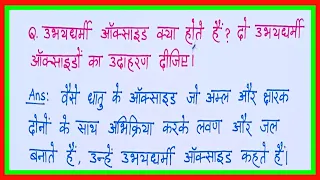 Q. उभयधर्मी ऑक्साइड क्या होते हैं? दो उभयधर्मी
ऑक्साइडों का उदाहरण दीजिए।
Ans: वैसे धातु के ऑक्साइड जो अम्ल और क्षारक
दोनों के साथ अभिक्रिया करके लवण और जल
बनाते हैं, उन्हें उभयधर्मी ऑक्साइड कहते हैं।